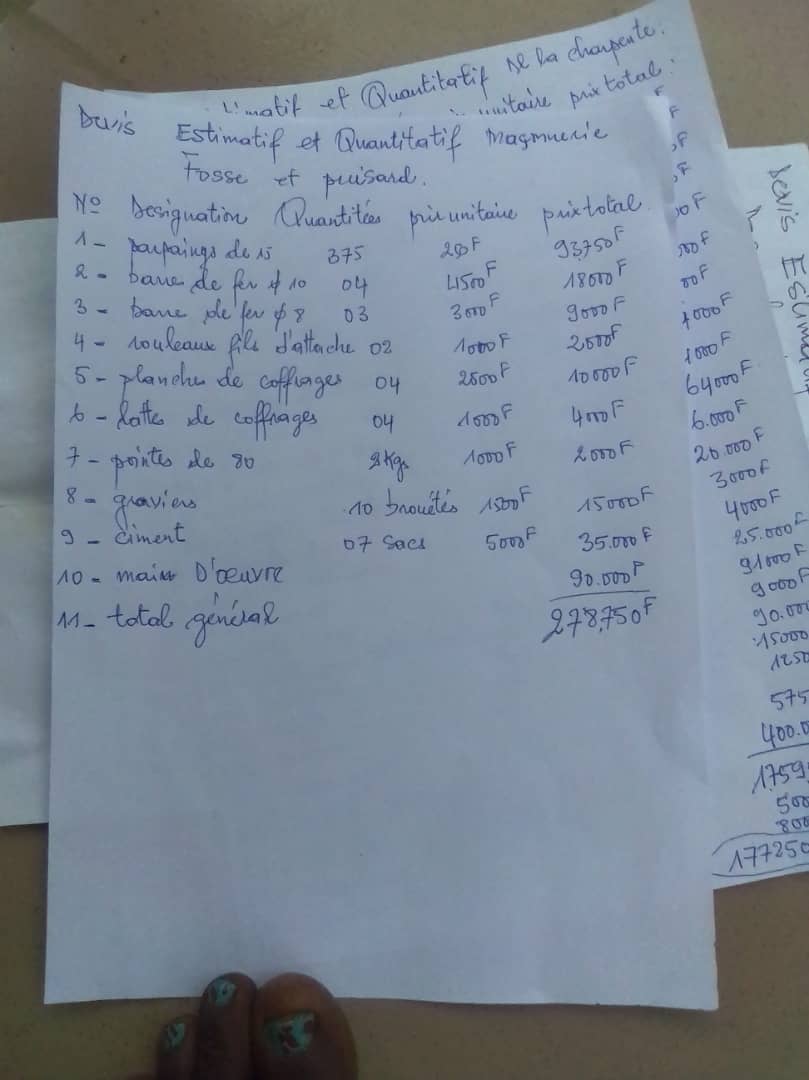 Devis Estimatif et Quantitatif Maçonnerie
Fosse et puisard.
N° Designation Quantités prix unitaire prix total
1 - parpaings de 15 375 250F 93750F
2 - barre de fer ϕ 10 04 4500F 18000F
3 - barre de fer ϕ 8 03 3000F 9000F
4 - rouleaux fils d'attache 02 1000F 2000F
5 - planches de coffrages 04 2500F 10000F
6 - latte de coffrages 04 1000F 4000F
7 - pointes de 80 2kgs 1000F 2000F
8 - graviers 10 brouétés 1500F 15000F
9 - Ciment 07 sacs 5000F 35.000F
10 - main D'œuvre 90.000F
11 - total général 278,750F
et Quantitatif De la charpente.
unitaire prix total.
1000F
1000F
64000F
6.000F
20.000F
3000F
4000F
25.000F
91000F
9000F
90.00
15000
1250
575
400.0
1759
500
800
177250
Devis